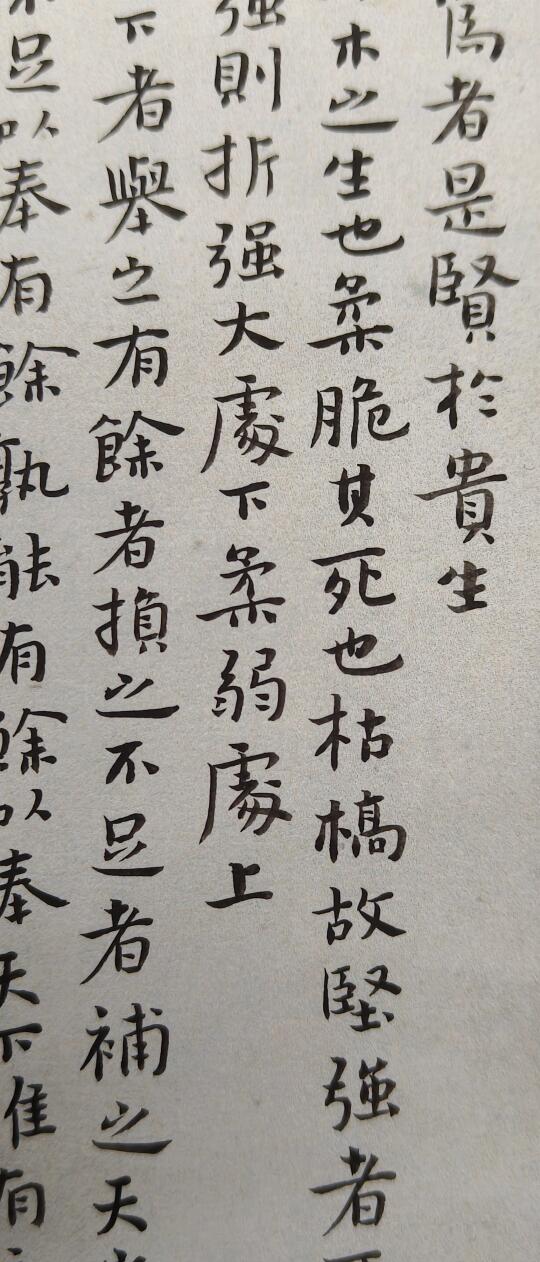 爲者是賢於貴生
木之生也柔脆其死也枯槁故堅强者
强則折强大處下柔弱處上
下者舉之有餘者損之不足者補之天
足以奉有餘孰能有餘以奉天下唯有